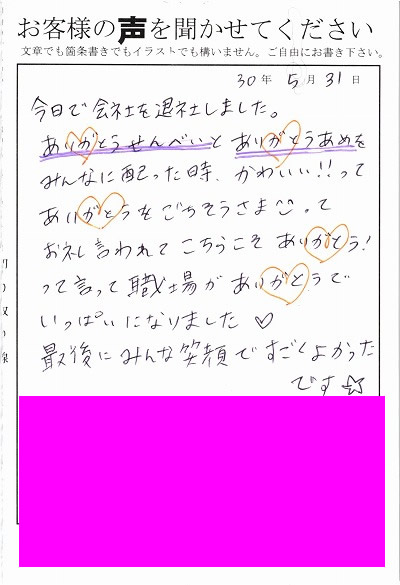 お客様の声を聞かせてください
文章でも箇条書きでもイラストでも構いません。ご自由にお書き下さい。
30年 5月 31日
今日で会社を退社しました。
ありがとうせんべいと ありがとうあめを
みんなに配った時、かわいい!!って
ありがとうをごちそうさま って
お礼言われてこちらこそ ありがとう!
って言って職場がありがとうで
いっぱいになりました♡
最後にみんな笑顔ですごくよかった
です☆